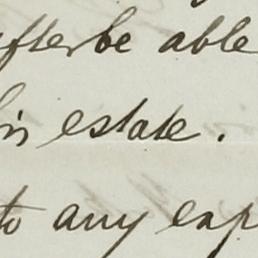 after be able
his estate.
to any exp